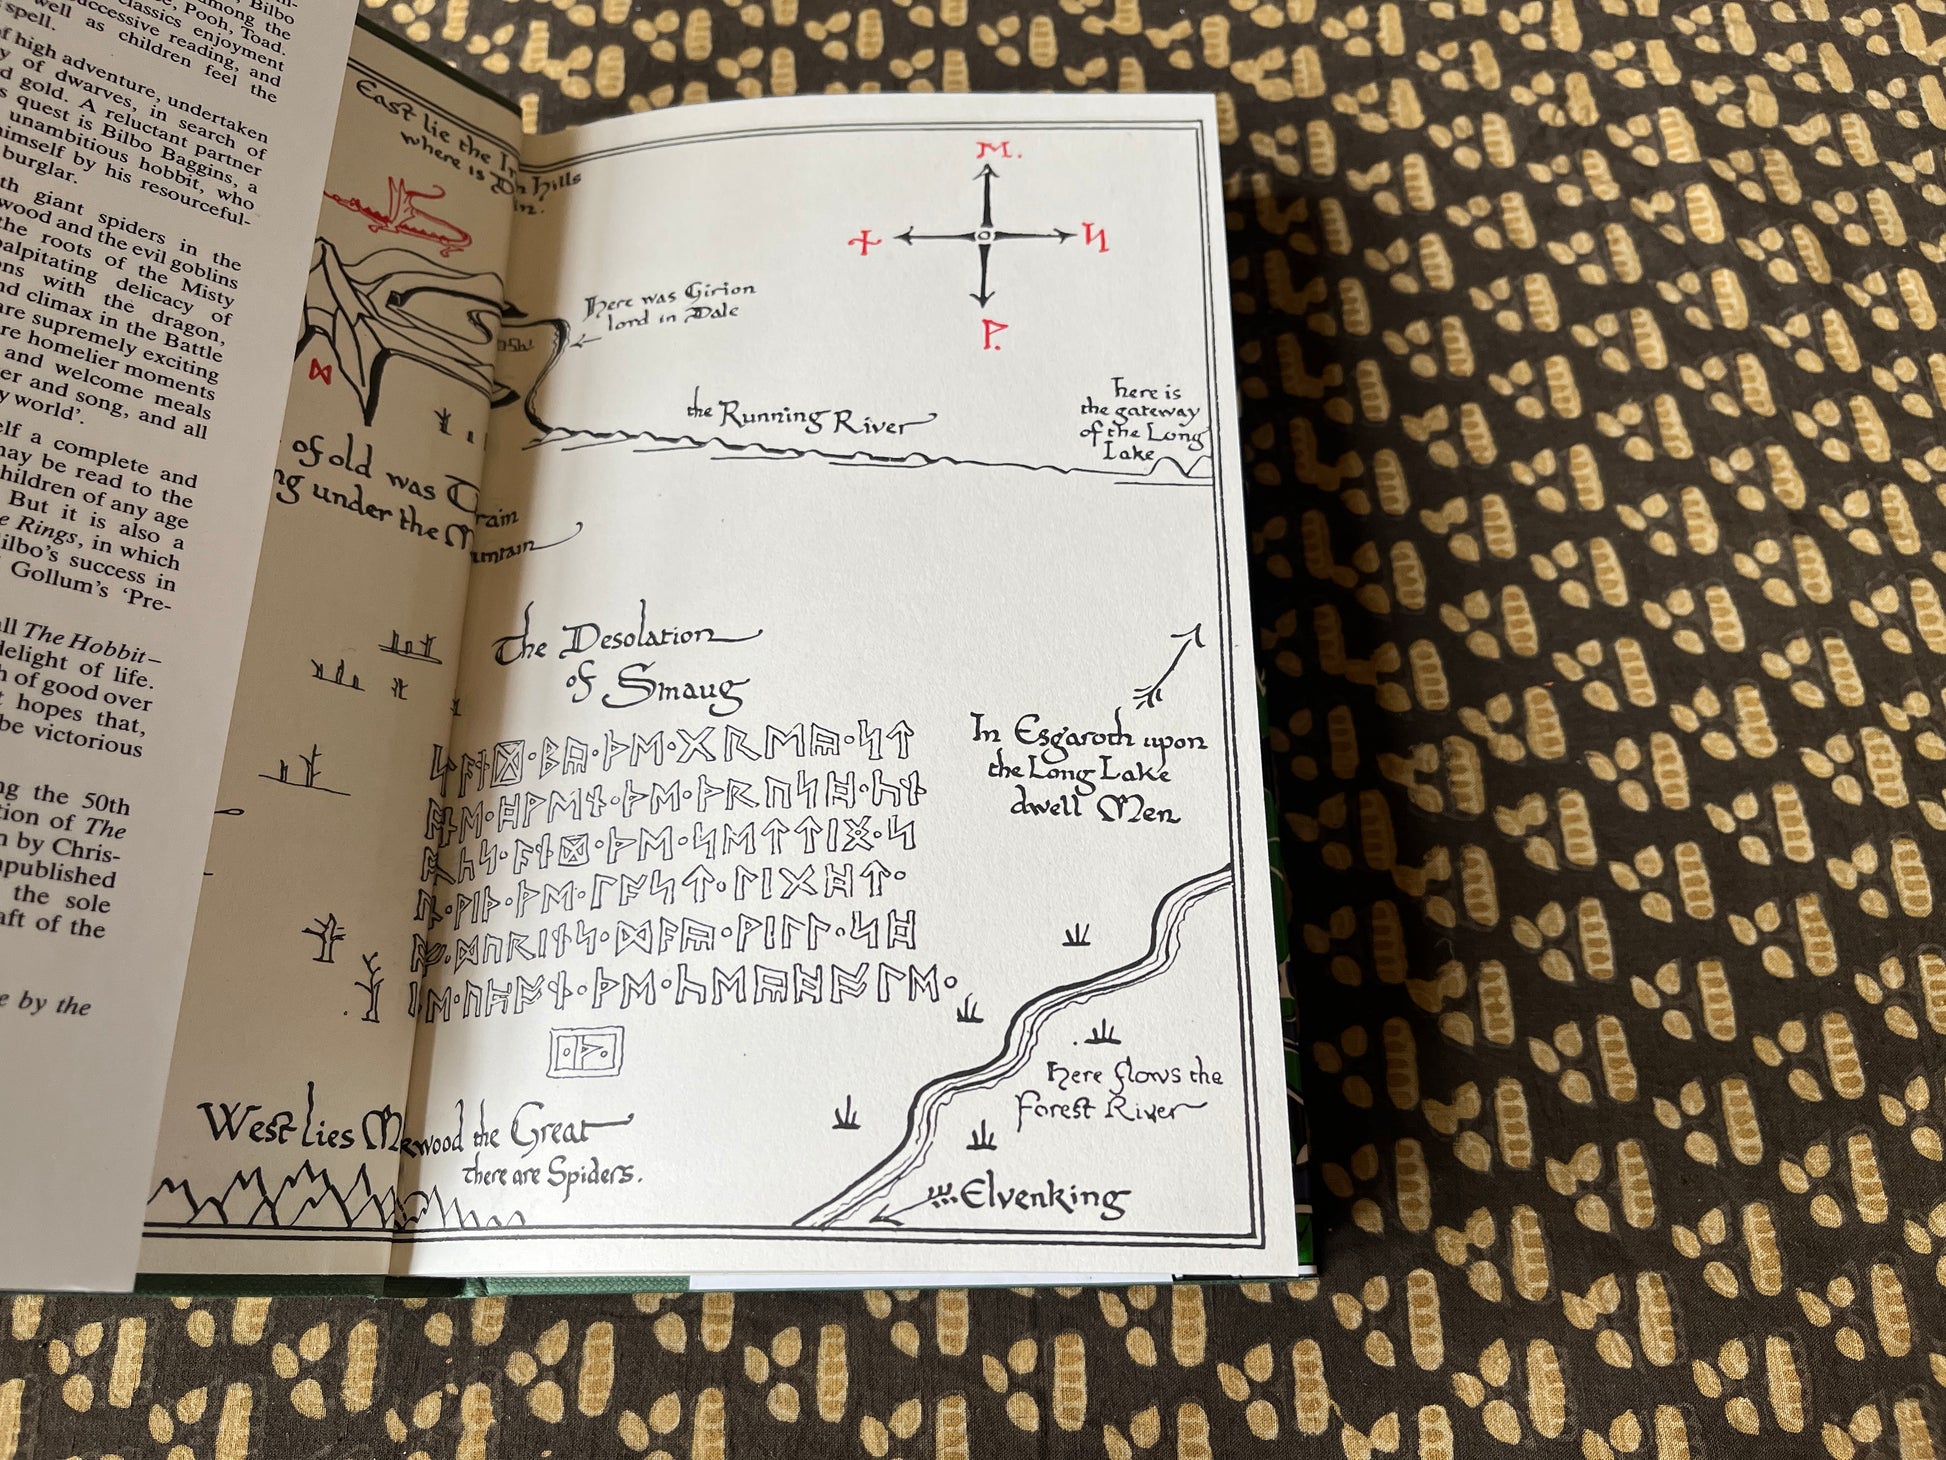 among the
, Pooh, Toad.
classics enjoyment
successive reading, and
well as children feel the
spell.
of high adventure, undertaken
of dwarves, in search of
gold. A reluctant partner
quest is Bilbo Baggins, a
unambitious hobbit, who
himself by his resourceful-
burglar.
giant spiders in the
wood and the evil goblins
the roots of the Misty
palpitating delicacy of
with the dragon,
climax in the Battle
are supremely exciting
homelier moments
and welcome meals
and song, and all
world’.
a complete and
may be read to the
children of any age
But it is also a
Rings, in which
Bilbo’s success in
Gollum’s ‘Pre-
The Hobbit–
delight of life.
of good over
hopes that,
be victorious
the 50th
of The
by Chris-
unpublished
the sole
of the
by the
East lie the Iron Hills
where is Dain.
ᛖ.
ᚾ
ᛋ
ᚹ.
Here was Girion
lord in Dale
ᛞ
the Running River
Here is
the gateway
of the Long
Lake
of old was Thrain
under the Mountain
The Desolation
of Smaug
ᛋᛏᚪᚾᛞ᛫ᛒᚣ᛫ᚦᛖ᛫ᚷᚱᛖᚣ᛫ᛋᛏ
ᚩᚾᛖ᛫ᚻᚹᛖᚾ᛫ᚦᛖ᛫ᚦᚱᚢᛋᚻ᛫ᚳᚾ
ᚩᚳᛋ᛫ᚪᚾᛞ᛫ᚦᛖ᛫ᛋᛖᛏᛏᛁᛝ᛫ᛋ
ᚢᚾ᛫ᚹᛁᚦ᛫ᚦᛖ᛫ᛚᚪᛋᛏ᛫ᛚᛁᚷᚻᛏ᛫
ᚩᚠ᛫ᛞᚢᚱᛁᚾᛋ᛫ᛞᚪᚣ᛫ᚹᛁᛚᛚ᛫ᛋᚻ
ᛁᚾᛖ᛫ᚢᛈᚩᚾ᛫ᚦᛖ᛫ᚳᛖᚣᚻᚩᛚᛖ᛫
᛫ᚦ᛫
In Esgaroth upon
the Long Lake
dwell Men
Here flows the
Forest River
Elvenking
West lies Mirkwood the Great
there are Spiders.